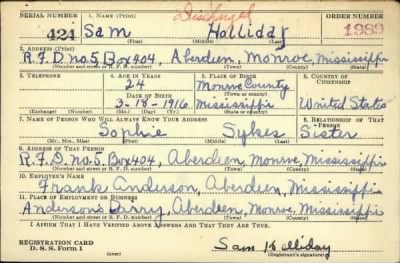 Discharged
SERIAL NUMBER 1. NAME (Print) ORDER NUMBER
424 Sam Halliday 1989
(First) (Middle) (Last)
2. ADDRESS (Print)
R.F.D no.5, Box 404, Aberdeen, Monroe, Mississippi
(Number and street or R. F. D. number) (Town) (County) (State)
3. TELEPHONE 4. AGE IN YEARS 5. PLACE OF BIRTH 6. COUNTRY OF CITIZENSHIP
24 Monroe County
(Town or county)
DATE OF BIRTH
3-18-1916 Mississippi United States
(Exchange) (Number) (Mo.) (Day) (Yr.) (State or country)
7. NAME OF PERSON WHO WILL ALWAYS KNOW YOUR ADDRESS 8. RELATIONSHIP OF THAT PERSON
Sophie Sykes Sister
(Mr., Mrs., Miss) (First) (Middle) (Last)
9. ADDRESS OF THAT PERSON
R.F.D. no.5, Box 404, Aberdeen, Monroe, Mississippi
(Number and street or R. F. D. number) (Town) (County) (State)
10. EMPLOYER'S NAME
Frank Anderson, Aberdeen, Mississippi
11. PLACE OF EMPLOYMENT OR BUSINESS
Anderson's Aberdeen, Monroe, Mississippi
(Number and street or R. F. D. number) (Town) (County) (State)
I AFFIRM THAT I HAVE VERIFIED ABOVE ANSWERS AND THAT THEY ARE TRUE.
REGISTRATION CARD
D. S. S. FORM 1 (over) Sam Halliday
(Registrant's signature)